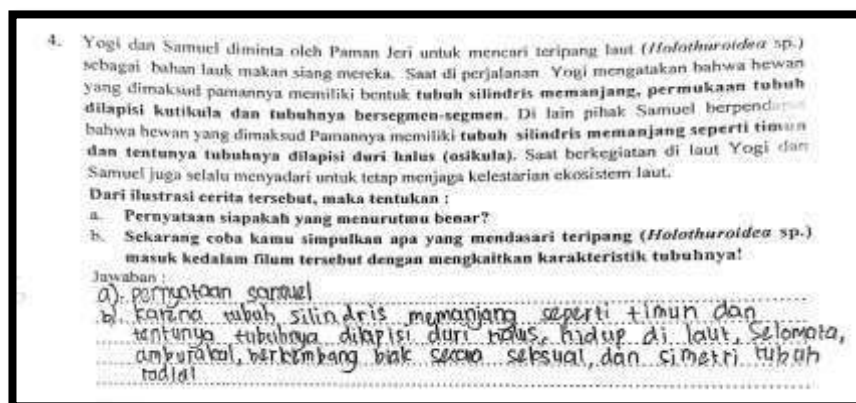 4. Yogi dan Samuel diminta oleh Paman Jeri untuk mencari teripang laut (Holothuroidea sp.)
sebagai bahan lauk makan siang mereka. Saat di perjalanan Yogi mengatakan bahwa hewan
yang dimaksud pamannya memiliki bentuk tubuh silindris memanjang, permukaan tubuh
dilapisi kutikula dan tubuhnya bersegmen-segmen. Di lain pihak Samuel berpendapat
bahwa hewan yang dimaksud Pamannya memiliki tubuh silindris memanjang seperti timun
dan tentunya tubuhnya dilapisi duri halus (osikula). Saat berkegiatan di laut Yogi dan
Samuel juga selalu menyadari untuk tetap menjaga kelestarian ekosistem laut.
Dari ilustrasi cerita tersebut, maka tentukan :
a. Pernyataan siapakah yang menurutmu benar?
b. Sekarang coba kamu simpulkan apa yang mendasari teripang (Holothuroidea sp.)
masuk kedalam filum tersebut dengan mengkaitkan karakteristik tubuhnya!
Jawaban :
a). pernyataan samuel
b). karena tubuh silindris memanjang seperti timun dan
tentunya tubuhnya dilapisi duri halus, hidup di laut, Selomata,
amburakal, berkembang biak secara seksual, dan simetri tubuh
radial